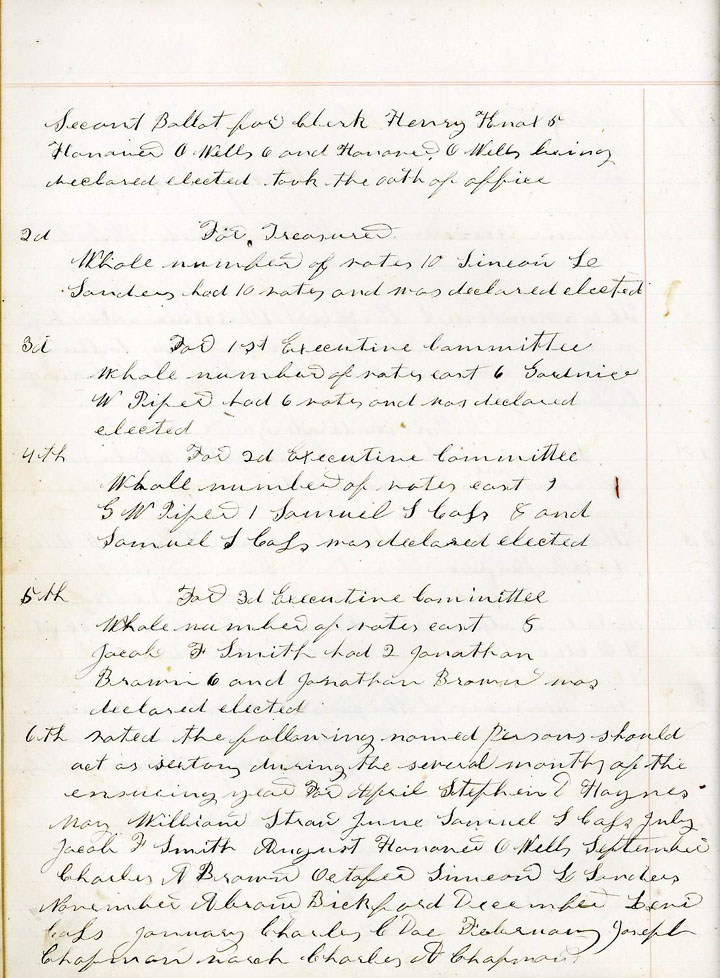 Second Ballot for Clerk Henry Knox 5
Hanover O Wells 6 and Hanover O Wells being
declared elected took the oath of office
2d For Treasurer
Whole number of votes 10 Simeon L
Sanders had 10 votes and was declared elected
3d For 1st Executive Committee
Whole number of votes cast 6 Gardnier
W Piper had 6 votes and was declared
elected
4th For 2d Executive Committee
Whole number of votes cast 9
G W Piper 1 Samuel S Cass 8 and
Samuel S Cass was declared elected
5th For 3d Executive Committee
Whole number of votes cast 8
Jacob F Smith had 2 Jonathan
Brown 6 and Jonathan Brown was
declared elected
6th voted the following named Persons should
act as during the several months of the
ensucing year For April Stephen D Haynes
May William Straw June Samuel S Cass July
Jacob F Smith August Hanover O Wells September
Charles A Brown October Simeon L Sanders
November Abram Bickford December Levi
Cass January Charles C Doe February Joseph
Chapman march Charles A Chapman